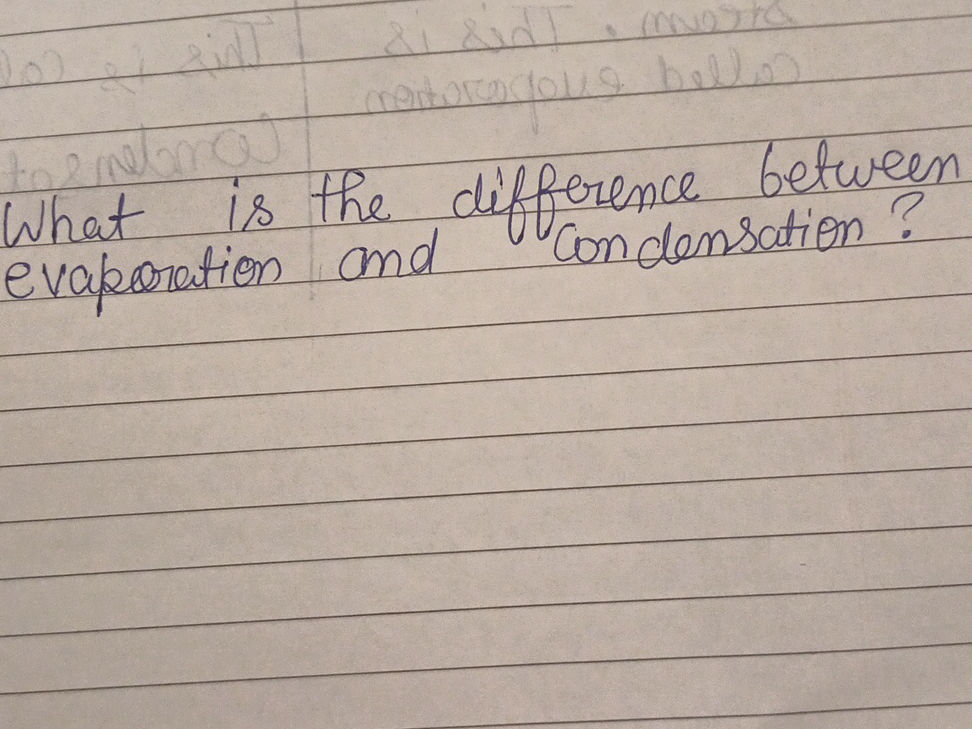 What is the difference between
evaporation and condensation?